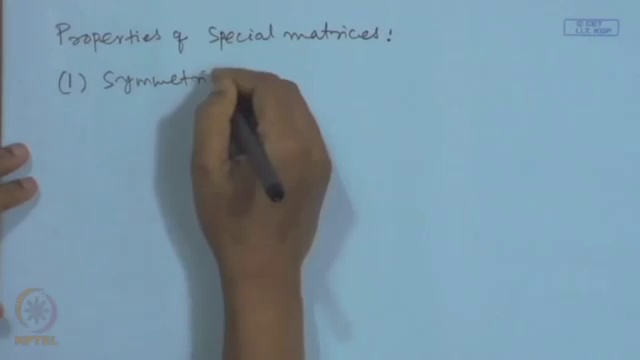 Properties of Special matrices:
(1) Symmetri
© CET
I.I.T. KGP
NPTEL